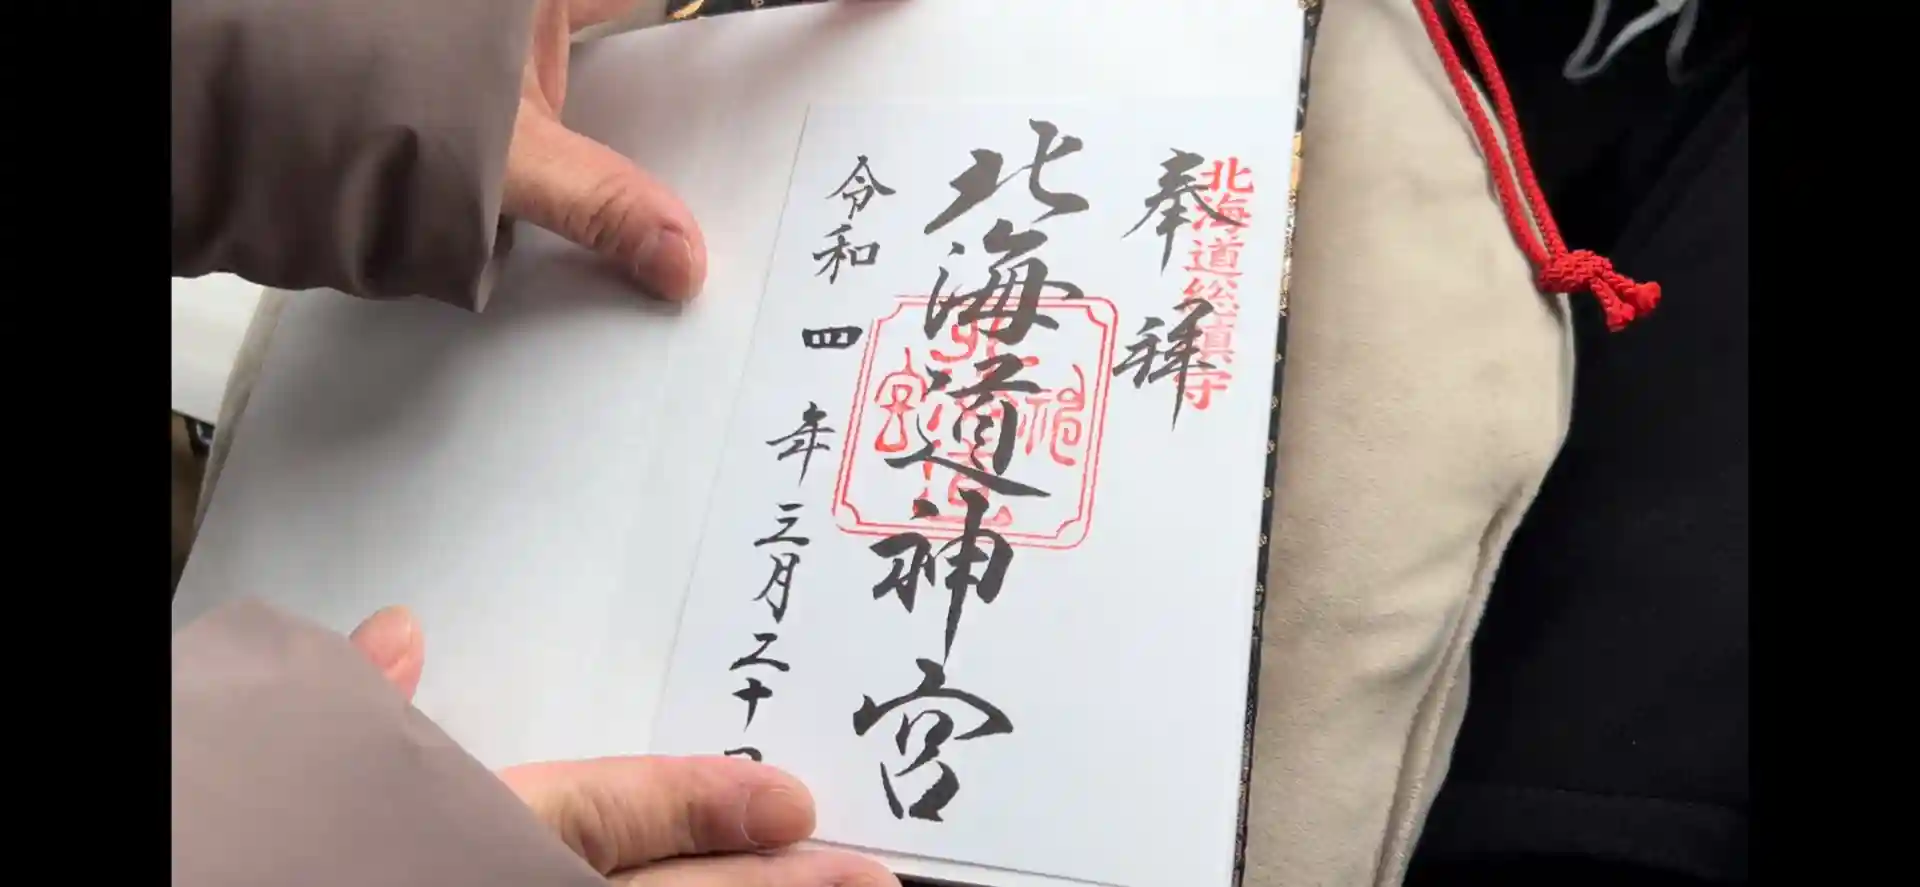 北海道総鎮守
奉拝
北海道神宮
令和四年三月二十